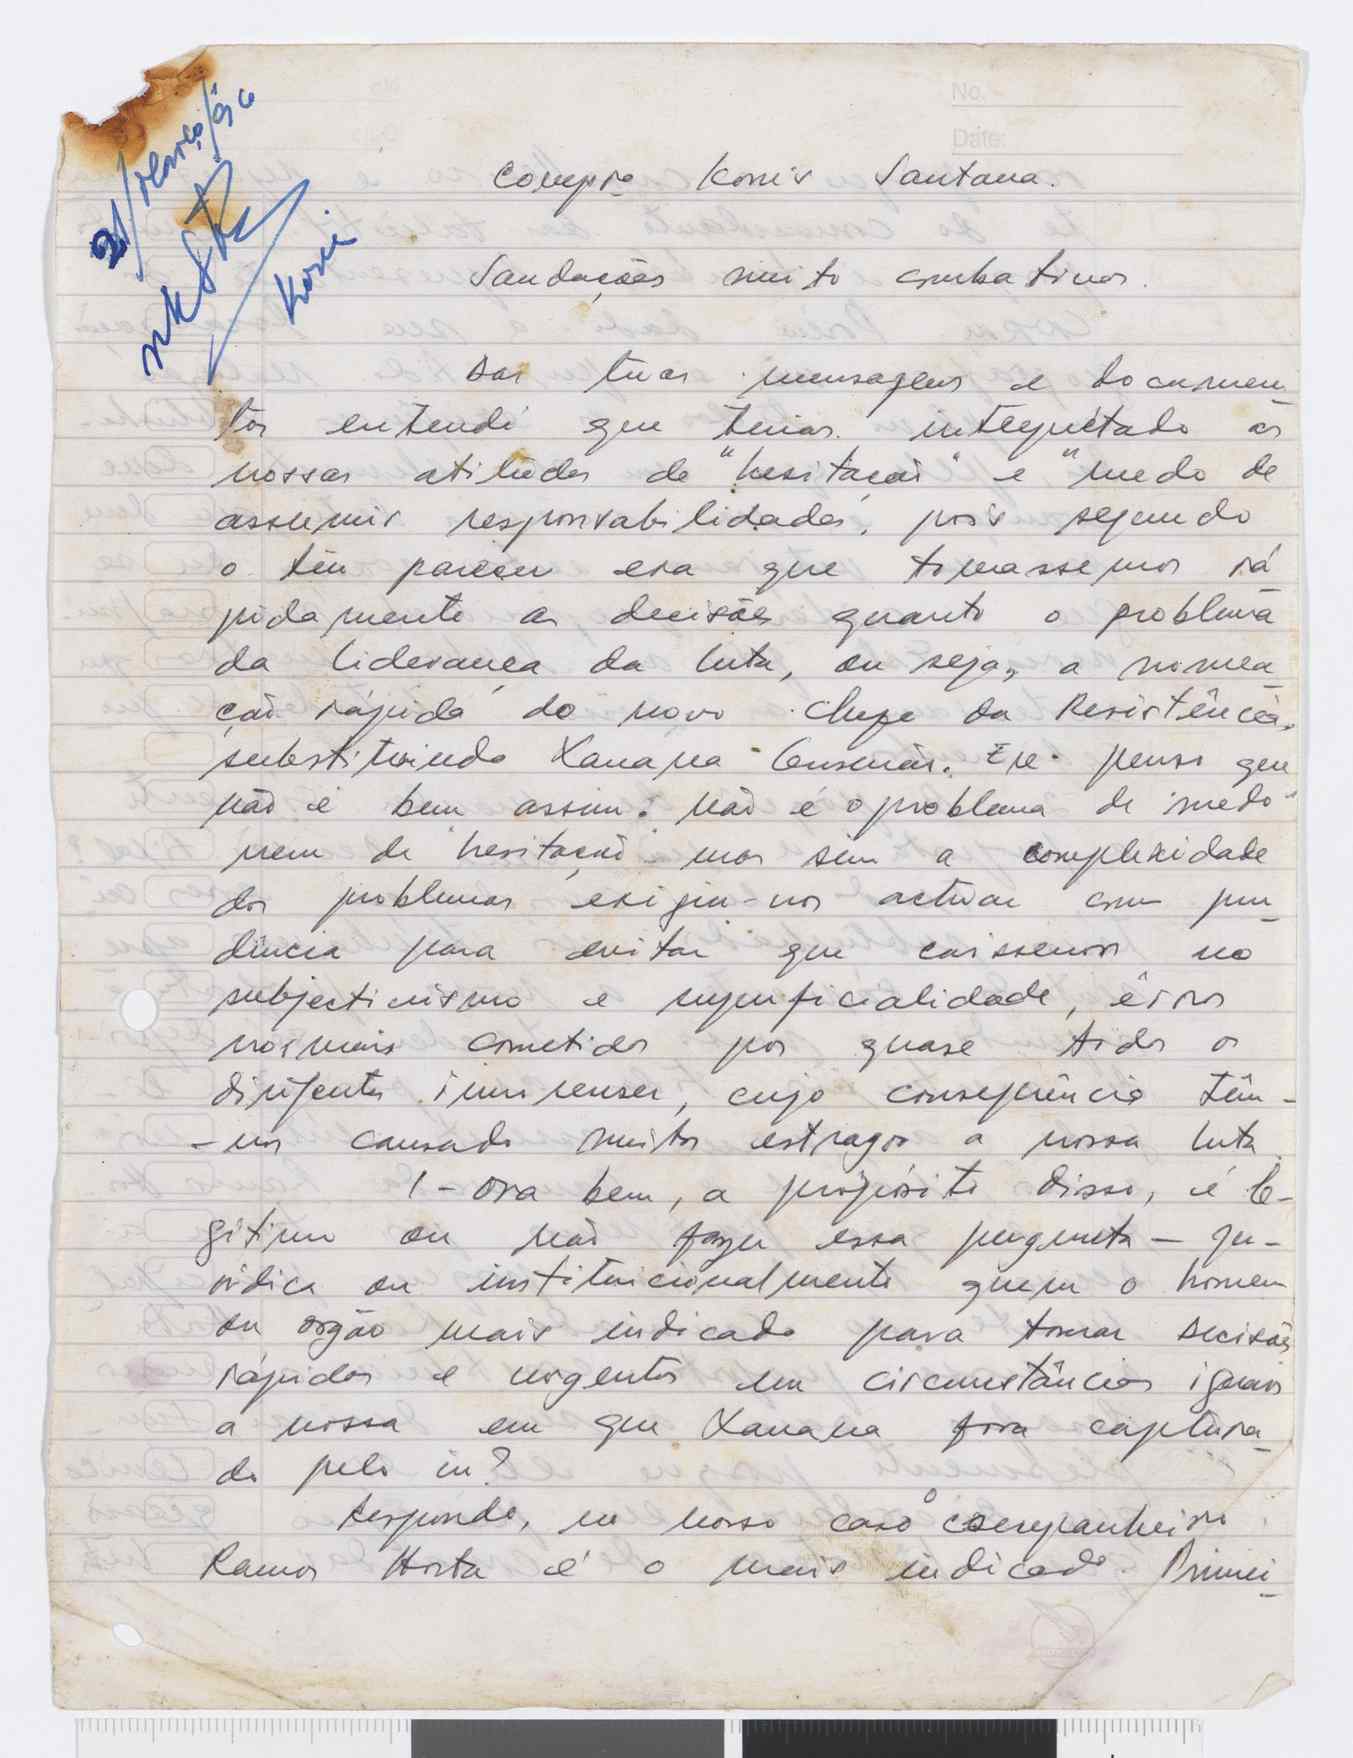 No.
Date:
Compro Konis Santana.
Saudações muito combativas.
Das tuas mensagens e documen
tos entendi que tenias interpretado as
nossas atitudes de "hesitação" e "medo de
assumir responsabilidades, pois segundo
o teu parecer era que tomassemos rá
pidamente as decisões quanto o problema
da liderança da luta, ou seja, a nomea
ção rápida do novo Chefe da Resistência,
substituindo Xanana Gusmão. Eu penso que
não é bem assim. Não é o problema de "medo"
nem de hesitação mas sim a complexidade
dos problemas exigiu-nos actuar com pru
dência para evitar que caissemos no
subjectivismo e superficialidade, êrros
normais cometidos por quase todos os
dirigentes timorenses, cujo consequência têm-
-nos causado muitos estragos a nossa luta.
1 - Ora bem, a propósito disso, é le-
gítimo ou não fazer essa pergunta - ju-
rídica ou instituicionalmente quem o homem
ou orgão mais indicado para tomar decisões
rápidas e urgentes em circunstâncias iguais
a nossa em que Xanana fora captura
do pelo in?
Respondo, no nosso caso o companheiro
Ramos Horta é o mais indicado. Primei
Konis